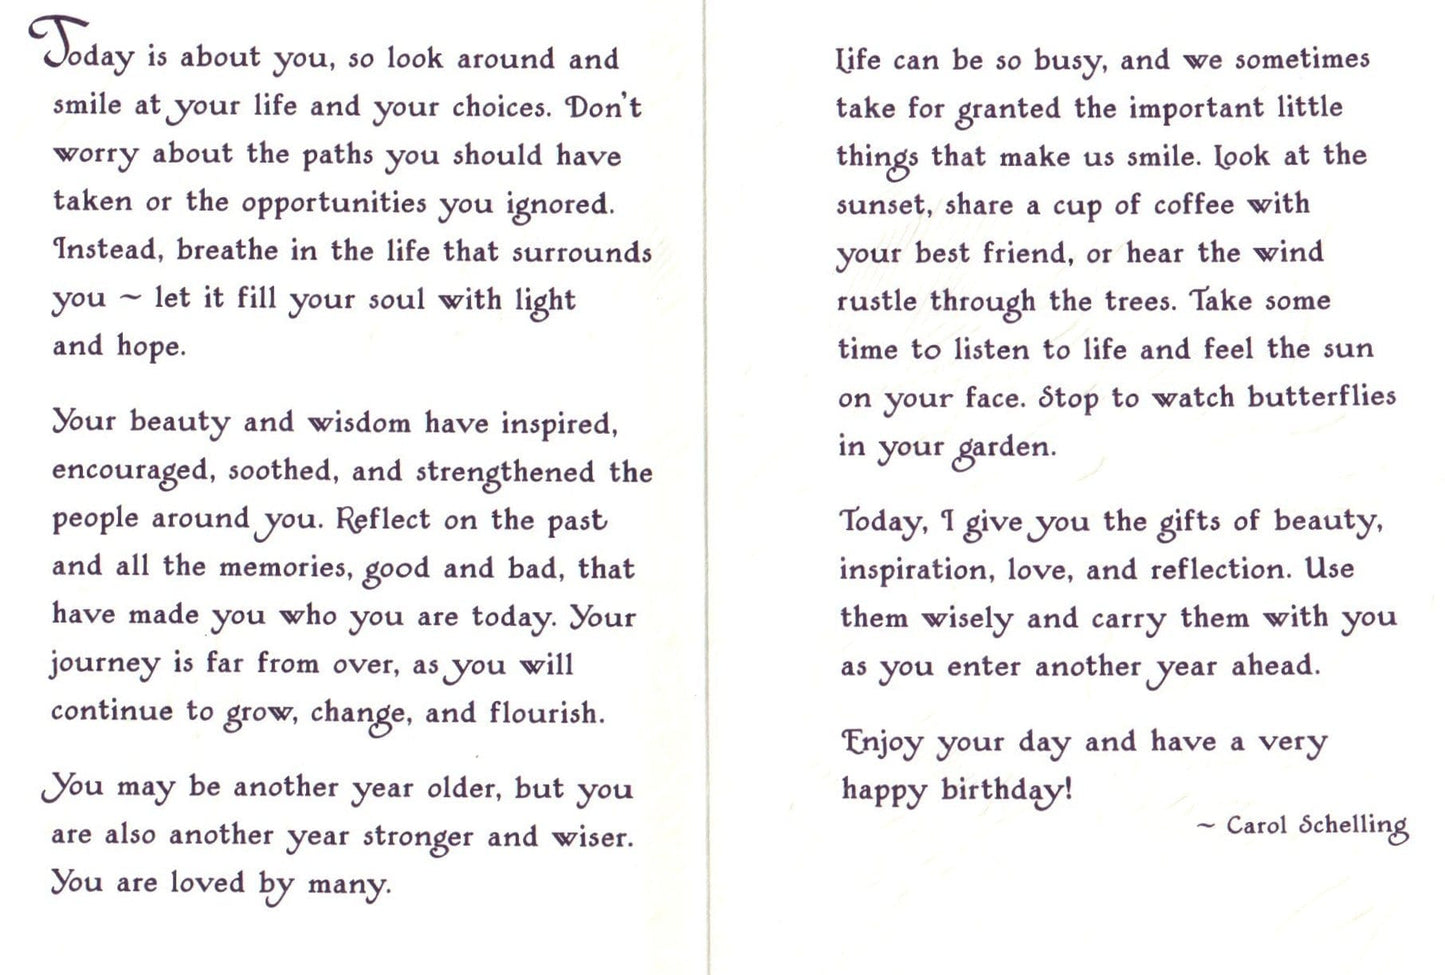 Today is about you, so look around and
smile at your life and your choices. Don't
worry about the paths you should have
taken or the opportunities you ignored.
Instead, breathe in the life that surrounds
you ~ let it fill your soul with light
and hope.
Your beauty and wisdom have inspired,
encouraged, soothed, and strengthened the
people around you. Reflect on the past
and all the memories, good and bad, that
have made you who you are today. Your
journey is far from over, as you will
continue to grow, change, and flourish.
You may be another year older, but you
are also another year stronger and wiser.
You are loved by many.
Life can be so busy, and we sometimes
take for granted the important little
things that make us smile. Look at the
sunset, share a cup of coffee with
your best friend, or hear the wind
rustle through the trees. Take some
time to listen to life and feel the sun
on your face. Stop to watch butterflies
in your garden.
Today, I give you the gifts of beauty,
inspiration, love, and reflection. Use
them wisely and carry them with you
as you enter another year ahead.
Enjoy your day and have a very
happy birthday!
~ Carol Schelling